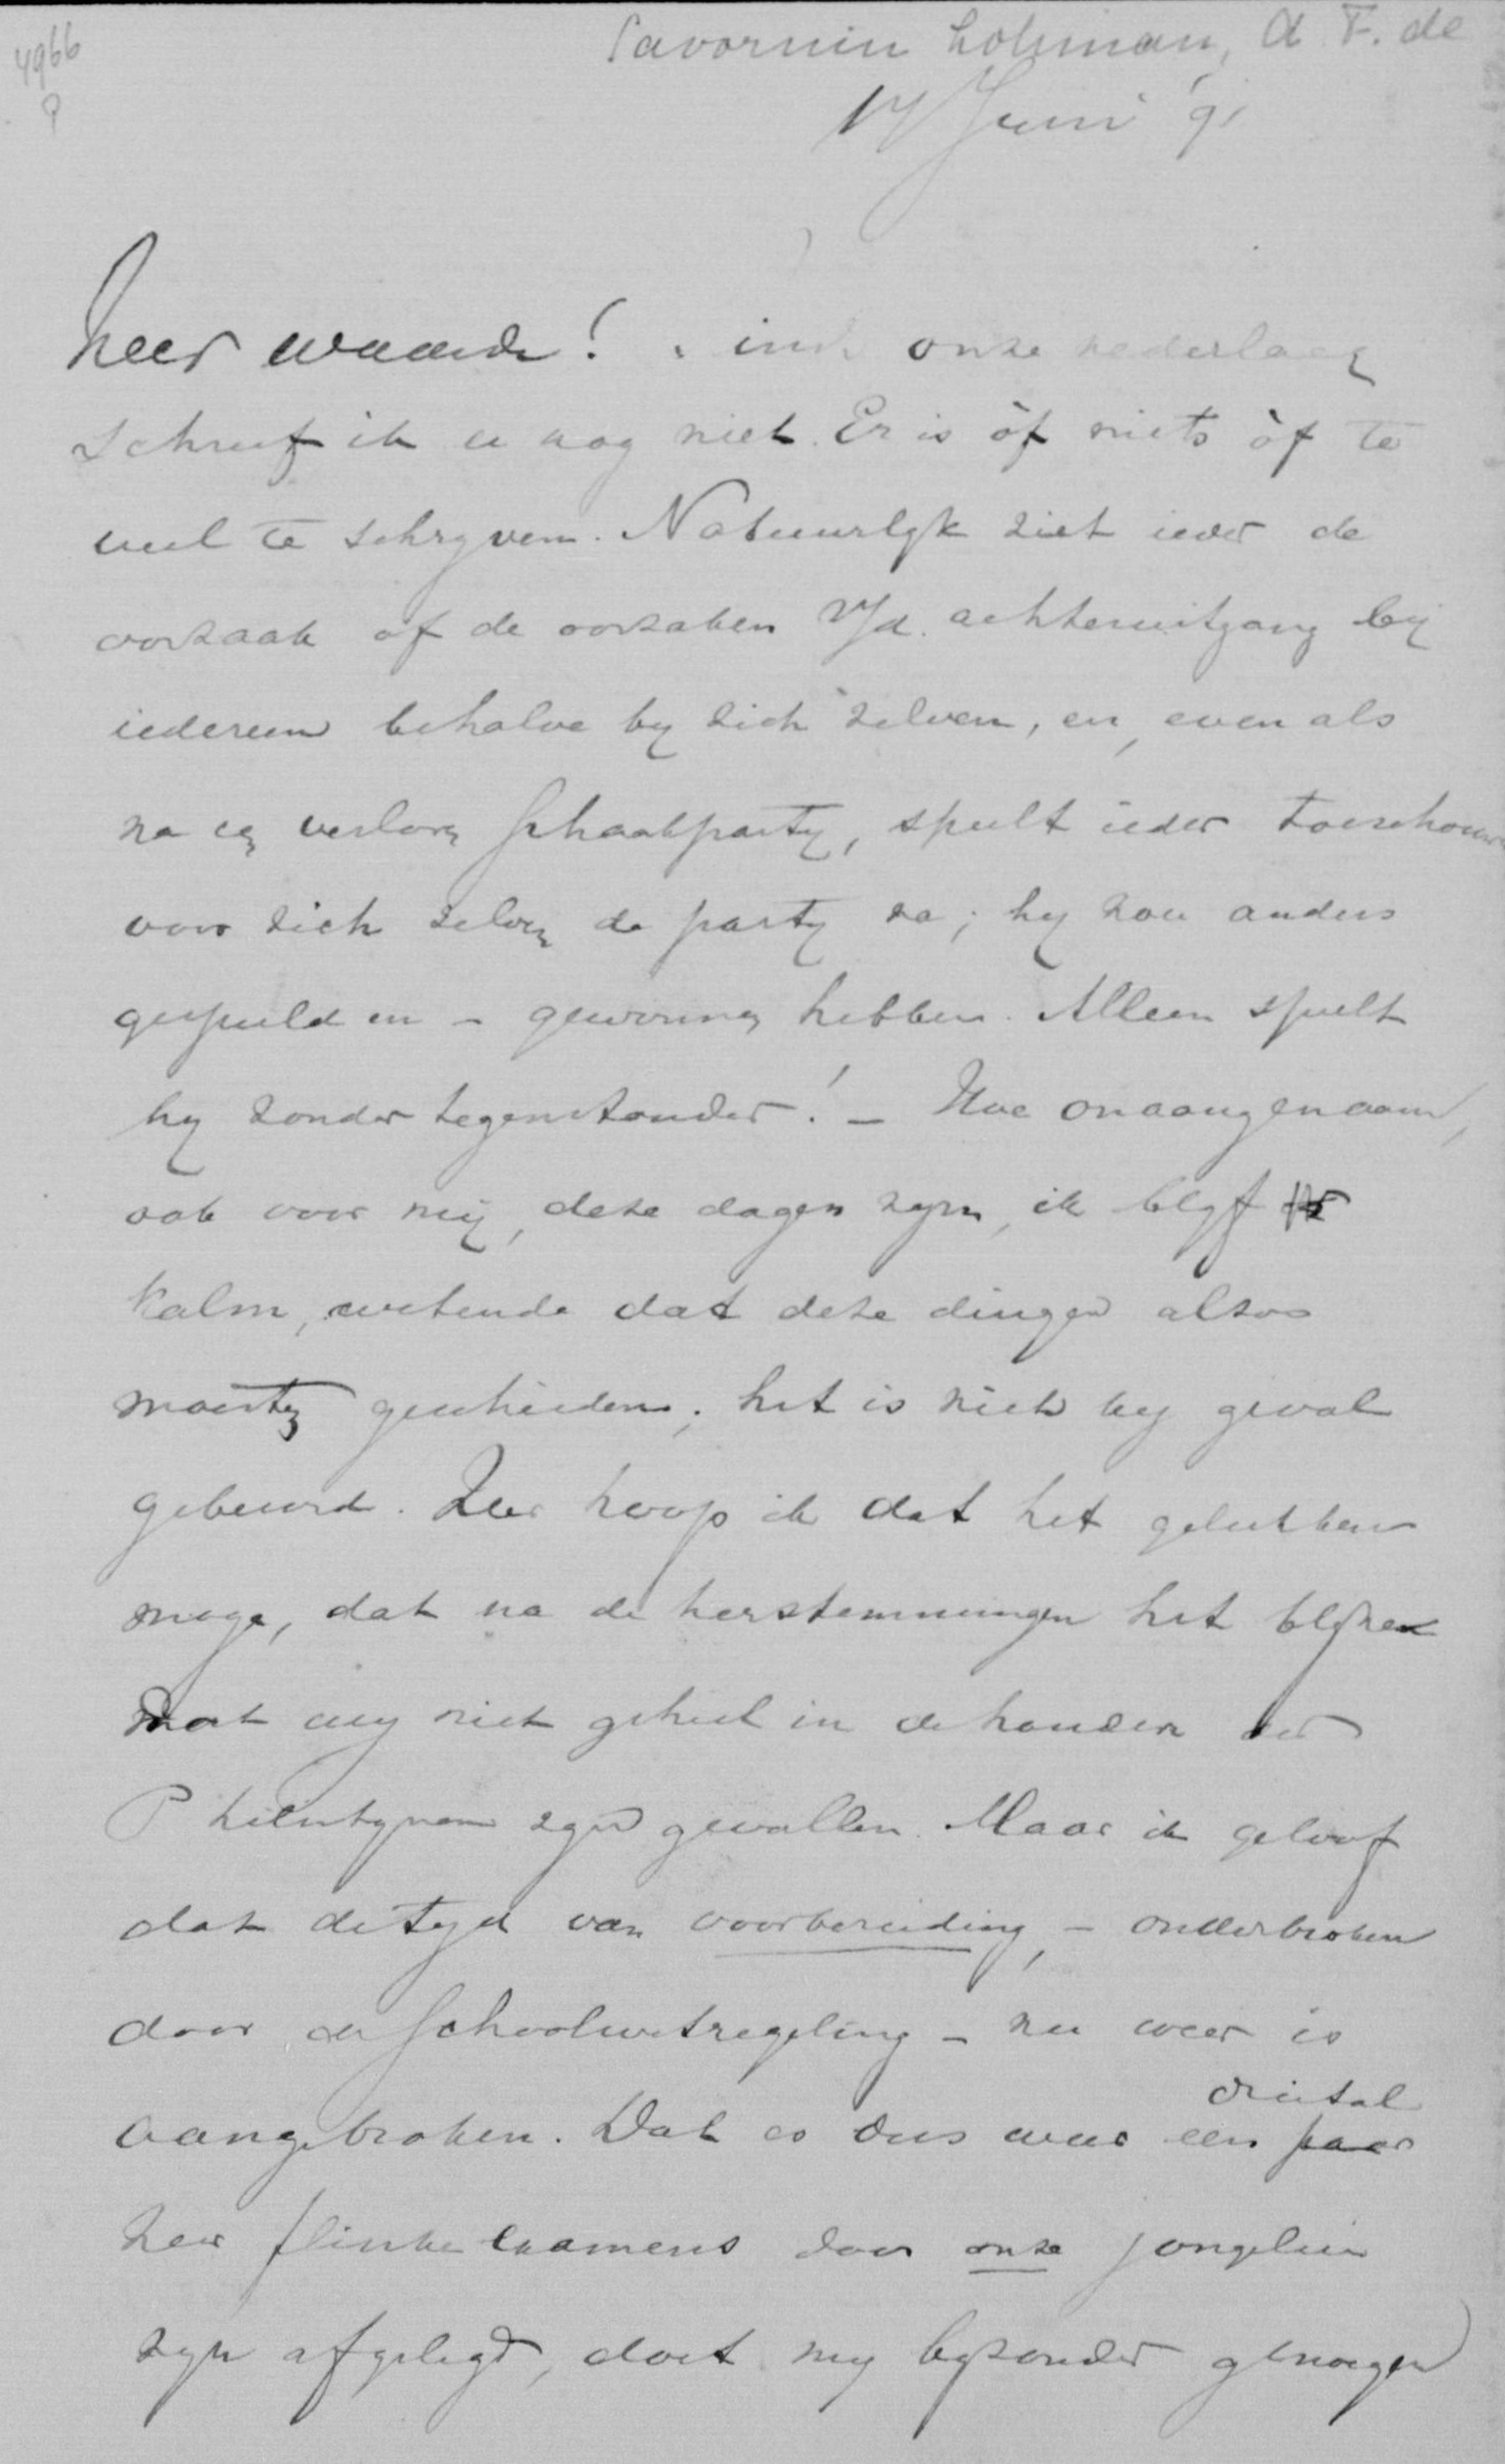 4966
Savornin Lohman, A F. de
17 Juni 91
Zeer waarde! onze nederlaag
schreef ik u nog niet. Er is òf niets òf te
veel te schryven. Natuurlyk ziet ieder de
oorzaak of de oorzaken v/d. achteruitgang bij
iedereen behalve by zich zelven, en, even als
na een verloren schaakparty, speelt ieder toeschouwer
voor zich zelven de party na; hy zou anders
gespeeld en – gewonnen hebben. Alleen speelt
hy zonder tegenstander! – Hoe onaangenaam,
ook voor mij, deze dagen zyn, ik blyf
kalm, wetende dat deze dingen alzoo
moesten geschieden; het is niet by geval
gebeurd. Zeer hoop ik dat het gelukken
moge, dat na de herstemmingen het blyke
dat wy niet geheel in de handen der
Philistynen zyn gevallen. Maar ik geloof
dat de tyd van voorbereiding, – onderbroken
door de schoolwetregeling – nu weer is
drietal
aangebroken. Dat er dus weer een paar
zeer flinke examens door onze jongelui
zyn afgelegd, doet my byzonder genoegen